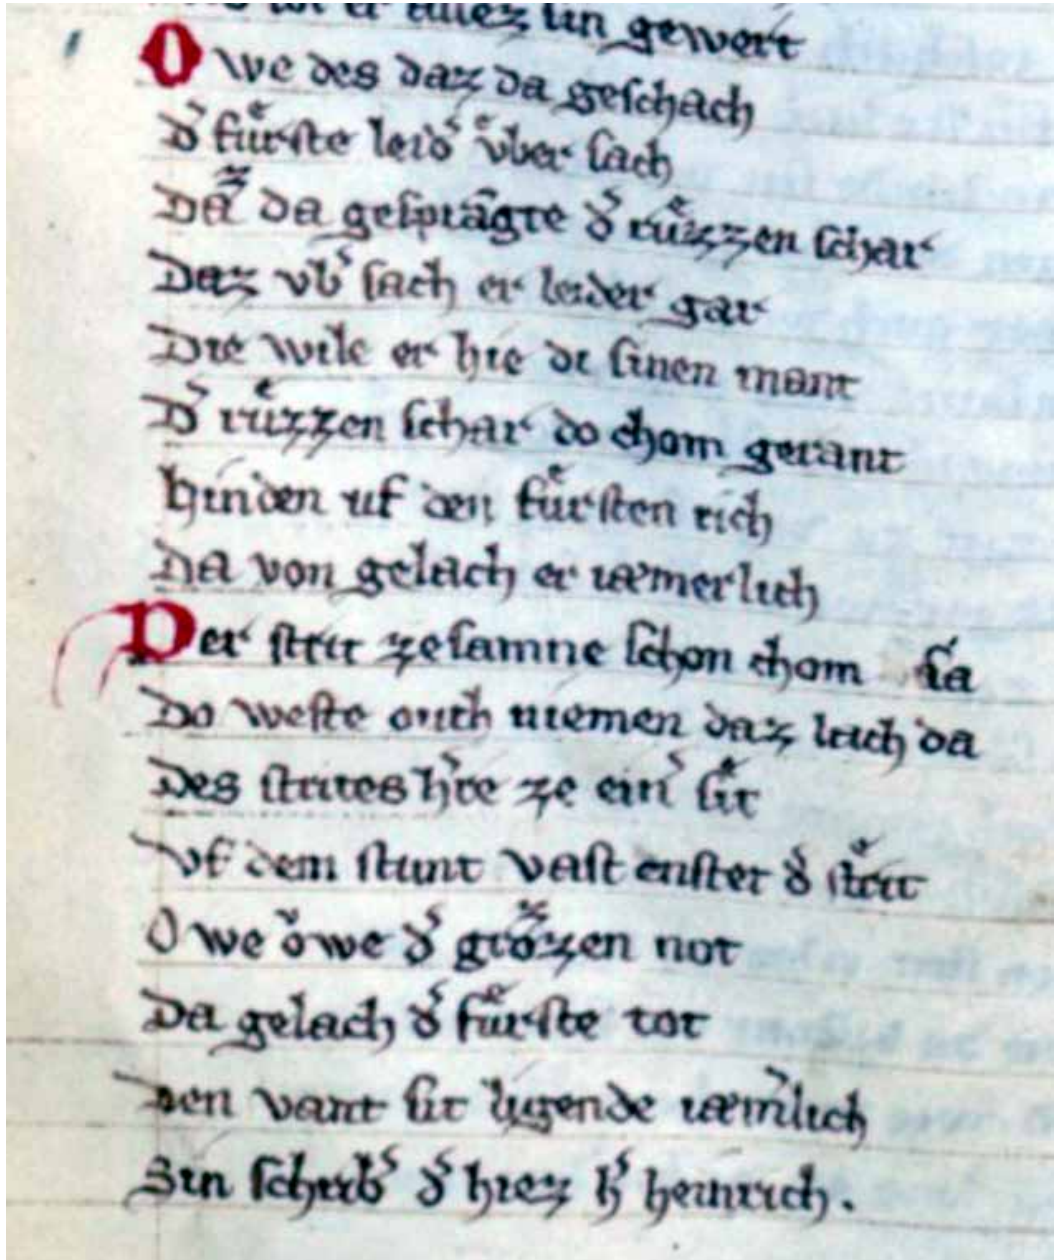 allez sin gewert
O we des daz da geschach
d͛ fuͤrste leid͛ vͤber sach
Da da gesprāgte d͛ ruͤzzen schar
Daz vb͛ sach er leider gar
Die wile er hie di sinen mant
D͛ ruͤzzen schar do chom gerant
hinden uf den fuͤrsten rich
Da von gelach er iæmerlich
Der strit zesamne schon chom sa
Do weste ouch niemen daz lach da
Des strites h͛re ze ein͛ sit
Vf dem stunt vast enster d͛ strit
O we owe d͛ grozzen not
Da gelach d͛ fuͤrste tot
Den vant sit ligende iæm͛lich
Sin schrib͛ d͛ hiez h͛ heinrich.